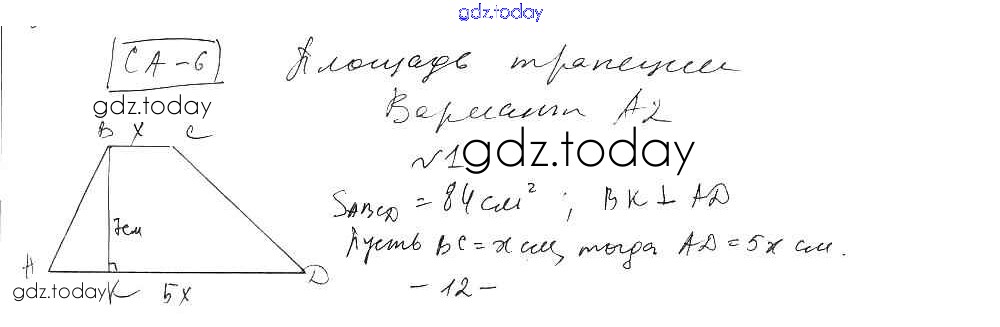 gdz.today
СА-6 Площадь трапеции
gdz.today
Вариант А2
B x C
№1 gdz.today
S_ABCD = 84 см²; BK ⊥ AD
7см
Пусть BC = x см, тогда AD = 5x см.
A D
gdz.today K 5x
- 12 -